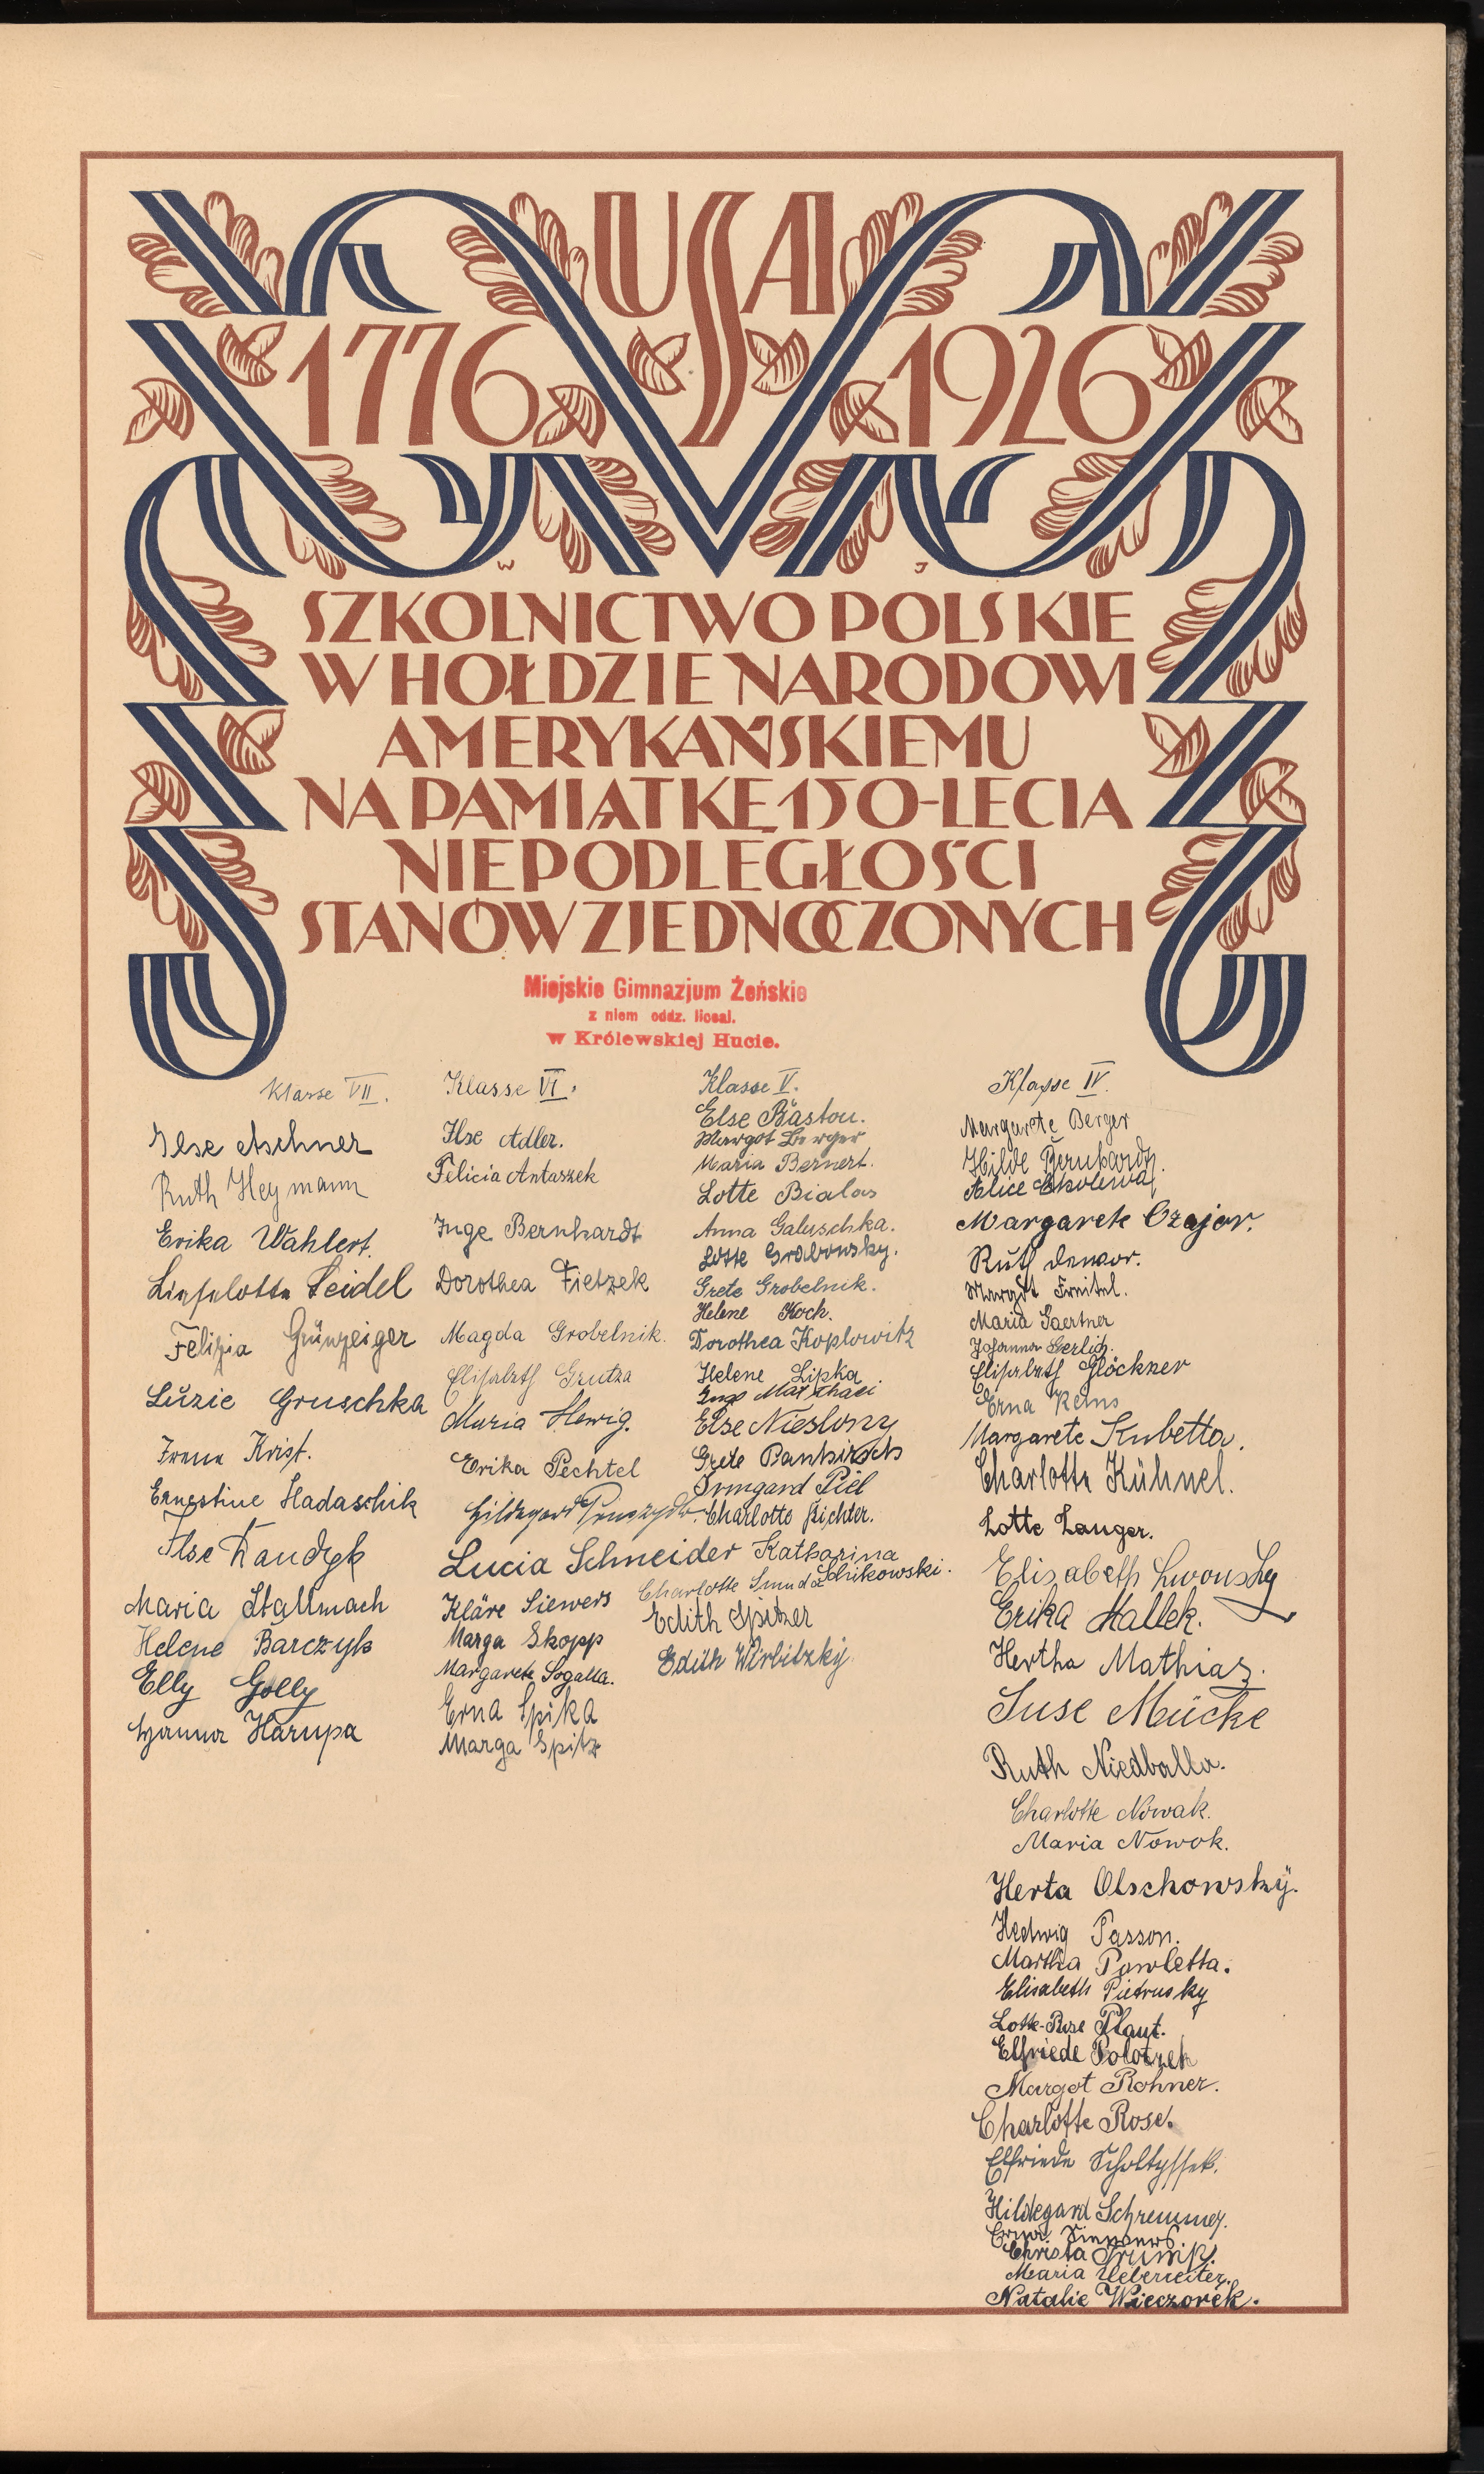 USA
1776 1926
W J
SZKOLNICTWO POLSKIE
W HOŁDZIE NARODOWI
AMERYKAŃSKIEMU
NA PAMIĄTKĘ 150-LECIA
NIEPODLEGŁOŚCI
STANÓW ZJEDNOCZONYCH
Miejskie Gimnazjum Żeńskie
z niem oddz. liceal.
w Królewskiej Hucie.
Klasse VII.
Ilse Aschner
Ruth Heymann
Erika Wahlert.
Lieselotte Seidel
Felizia Grünzeiger
Luzie Gruschka
Irene Krist.
Ernestine Hadaschik
Ilse Kandzk
Maria Stallmach
Helene Barczyk
Elly Golly
Hanna Harupa
Klasse VI.
Ilse Adler.
Felicia Antaszek
Inge Bernhardt
Dorothea Fietzek
Magda Grobelnik.
Elisabeth Grutza
Maria Hewig.
Erika Pechtel
Hildegard
Lucia Schneider
Kläre Siewers
Marga Skopp
Margarete Sogalla.
Erna Spika
Marga Spitz
Klasse V.
Else Bastou.
Margot Berger
Maria Bernert.
Lotte Bialas
Anna Galuschka.
Lotte Grabowsky.
Grete Grobelnik.
Helene Koch.
Dorothea Koplowitz
Helene Lipka
Inge
Else Nieslony
Grete Pankirsch
Irmgard Piel
Charlotte Richter.
Katharina
Schikowski.
Charlotte Smuda
Edith Spitzer
Edith Wirbitzky.
Klasse IV.
Margarete Berger
Hilde Bernhardt.
Alice
Margarete Czajor.
Ruth
Margot Freitel.
Maria Gaertner
Johanna Gerlich.
Elisabeth Glöckner
Erna Keins
Margarete Kubetta.
Charlotte Kühnel.
Lotte Langer.
Elisabeth Lwowsky
Erika Mallek.
Hertha Mathias.
Suse Mücke
Ruth Niedballa.
Charlotte Nowak.
Maria Nowok.
Herta Olschowsky.
Hedwig Passon.
Martha Pawletta.
Elisabeth Pietrusky
Lotte-Rose Plaut.
Elfriede Polotzek
Margot Rohner.
Charlotte Rose.
Elfriede Scholtyssek.
Hildegard Schremmer.
Erna Siewers
Christa Trumpf.
Maria Ueberreiter.
Natalie Wieczorek.